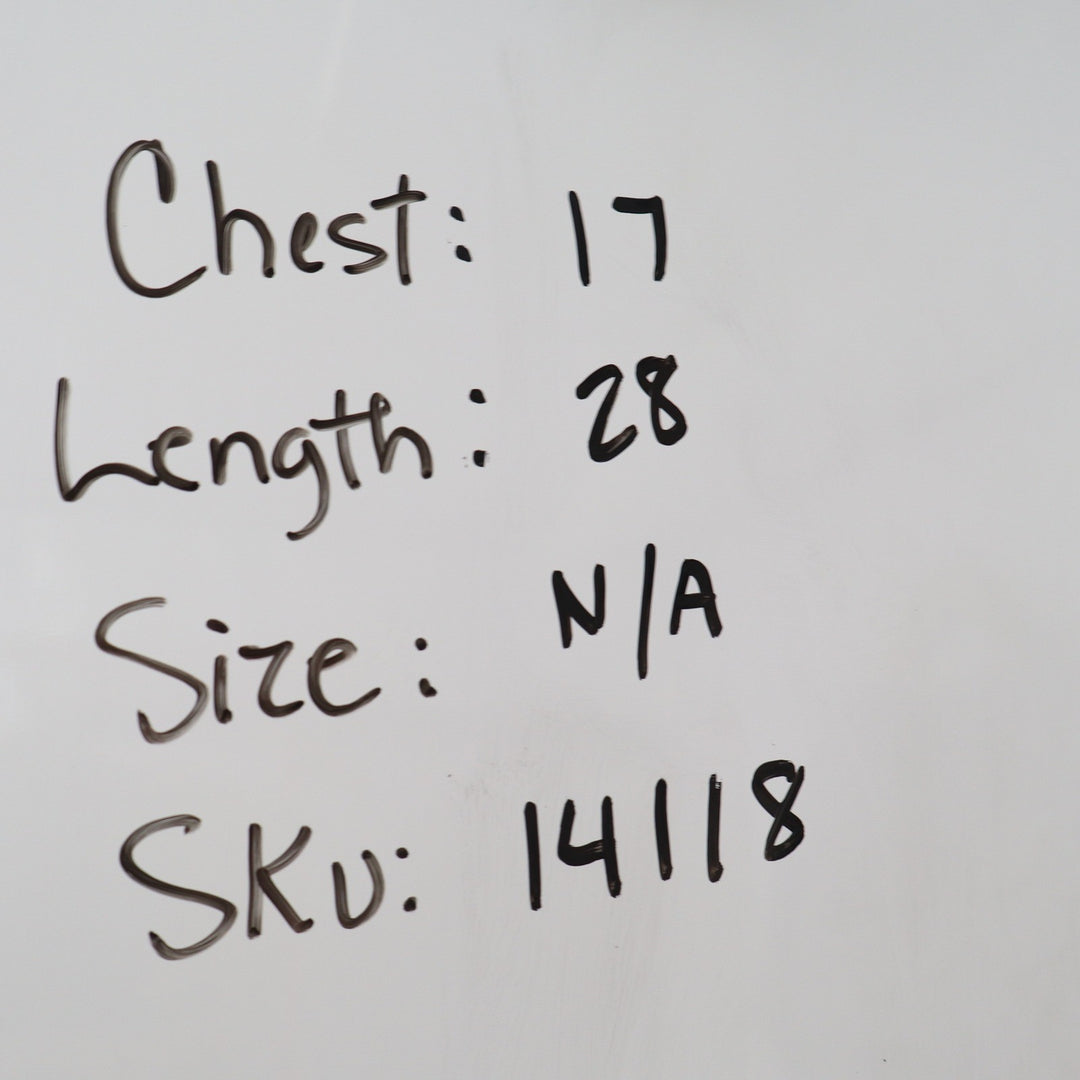 Chest: 17
Length: 28
Size: N/A
SKU: 14118